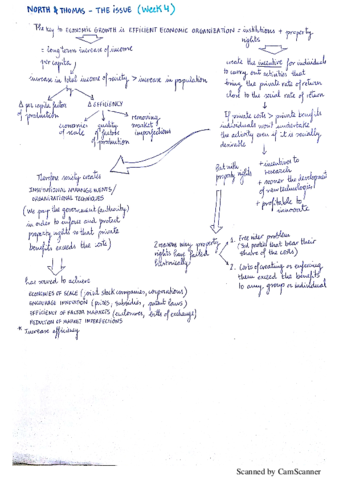 NORTH & THOMAS - THE ISSUE (Week 4)
The key to ECONOMIC GROWTH is EFFICIENT ECONOMIC ORGANIZATION = institutions + property rights
= long term increase of income
per capita
increase in total income of society > increase in population
Δ per capita factor
of production
Δ EFFICIENCY
economies
of scale
quality
of factors
of production
removing
market
imperfections
create the incentive for individuals
to carry out activities that
bring the private rate of return
close to the social rate of return
If private costs > private benefits
individuals won't undertake
the activity even if it is socially
desirable
But with
property rights
+ incentives to
research
+ sooner the development
of new technologies
+ profitable to
innovate
Therefore society creates
INSTITUTIONAL ARRANGEMENTS/
ORGANIZATIONAL TECHNIQUES
(We pay the government (authority)
in order to enforce and protect
property rights so that private
benefits exceeds the costs)
2 reasons why property
rights have failed
historically
1. Free rider problem
(3rd parties that bear their
share of the costs)
2. Costs of creating or enforcing
them exceed the benefits
to any group or individual
has served to achieve
ECONOMIES OF SCALE (joint stock companies, corporations)
ENCOURAGE INNOVATION (prizes, subsidies, patent laws)
EFFICIENCY OF FACTOR MARKETS (enclosures, bills of exchange)
REDUCTION OF MARKET IMPERFECTIONS
* Increase efficiency
Scanned by CamScanner